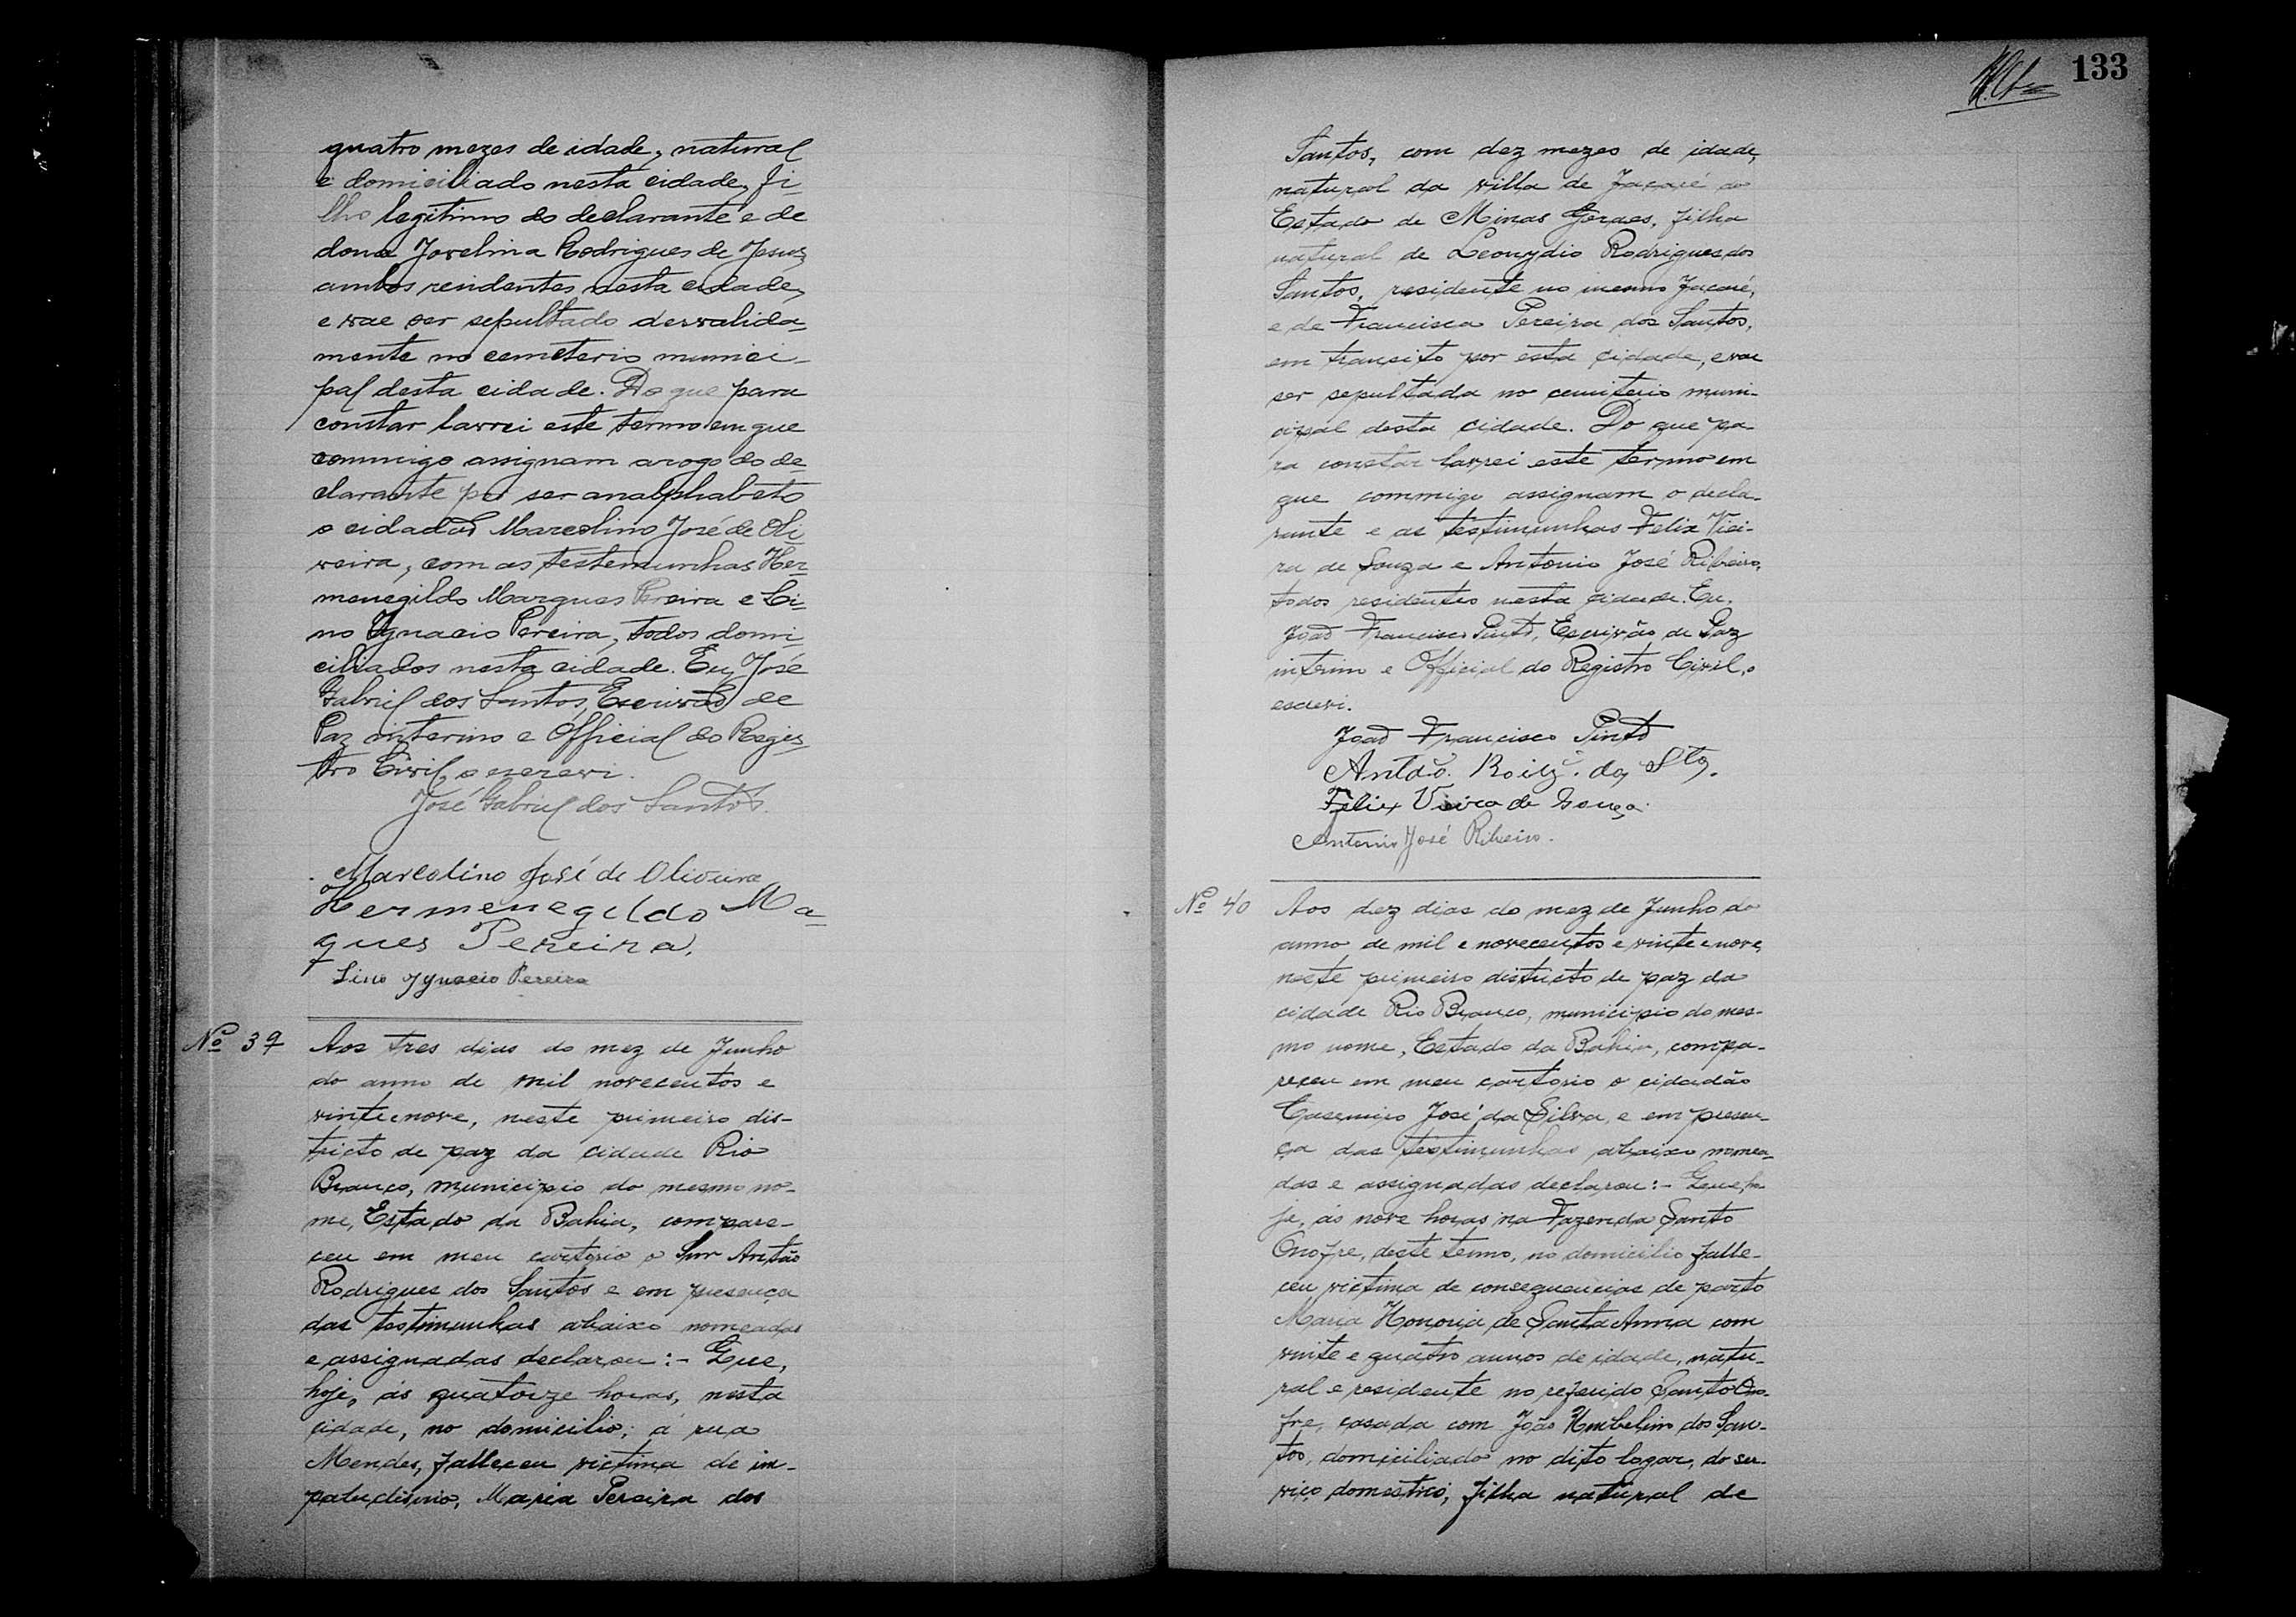 quatro mezes de idade, natural
e domiciliado nesta cidade, fi-
lho legitimo do declarante e de
dona Jovelina Rodrigues de Jesus,
ambos residentes nesta cidade,
e vae ser sepultado desvalida-
mente no cemeterio munici-
pal desta cidade. Do que para
constar lavrei este termo em que
commigo assignam arogo do de-
clarante por ser analphabeto
o cidadão Marcolino José de Oli-
veira, com as testemunhas Her-
menegildo Marques Pereira e Li-
no Ignacio Pereira, todos domi-
ciliados nesta cidade. Eu, José
Gabriel dos Santos, Escrivão de
Paz interino e Official do Regis-
tro Civil, o escrevi.
José Gabriel dos Santos.
Marcolino José de Oliveira
Hermenegildo Ma-
ques Pereira.
Lino Ygnacio Pereira
Nº 39
Aos tres dias do mez de Junho
do anno de mil novecentos e
vinte e nove, neste primeiro dis-
tricto de paz da cidade Rio
Branco, municipio do mesmo no-
me, Estado da Bahia, compare-
ceu em meu cartorio o Snr Antão
Rodrigues dos Santos e em presença
das testimunhas abaixo nomeadas
e assignadas declarou:- Que,
hoje, ás quatorze horas, nesta
cidade, no domicilio, á rua
Mendes, falleceu victima de im-
paludismo, Maria Pereira dos
133
Santos, com dez mezes de idade,
natural da villa de Jacaré do
Estado de Minas Geraes, filha
natural de Leonydio Rodrigues dos
Santos, residente no mesmo Jacaré,
e de Francisca Pereira dos Santos,
em transito por esta cidade, e vae
ser sepultada no cemiterio muni-
cipal desta cidade. Do que pa-
ra constar lavrei este termo em
que commigo assignam o decla-
rante e as testimunhas Felix Viei-
ra de Souza e Antonio José Ribeiro,
todos residentes nesta cidade. Eu.
João Francisco Pinto, Escrivão de Paz
interino e Official do Registro Civil, o
escrevi.
João Francisco Pinto
Antão. Roiz. dos Stos.
Felix Vieira de Souza.
Antonio José Ribeiro.
Nº 40
Aos dez dias do mez de Junho do
anno de mil e novecentos e vinte e nove,
neste primeiro districto de paz da
cidade Rio Branco, municipio do mes-
mo nome, Estado da Bahia, compa-
receu em meu cartorio o cidadão
Casemiro José da Silva, e em presen-
ça das testimunhas abaixo nomea-
das e assignadas declarou:- Que, ho-
je, ás nove horas na Fazenda Santo
Onofre, deste termo, no domicilio falle-
ceu victima de consequencias de parto
Maria Honoria de Santa Anna com
vinte e quatro annos de idade, natu-
ral e residente no referido Santo Ono-
fre, casada com João Umbelino dos San-
tos, domiciliado no dito logar, do ser-
viço domestico, filha natural de